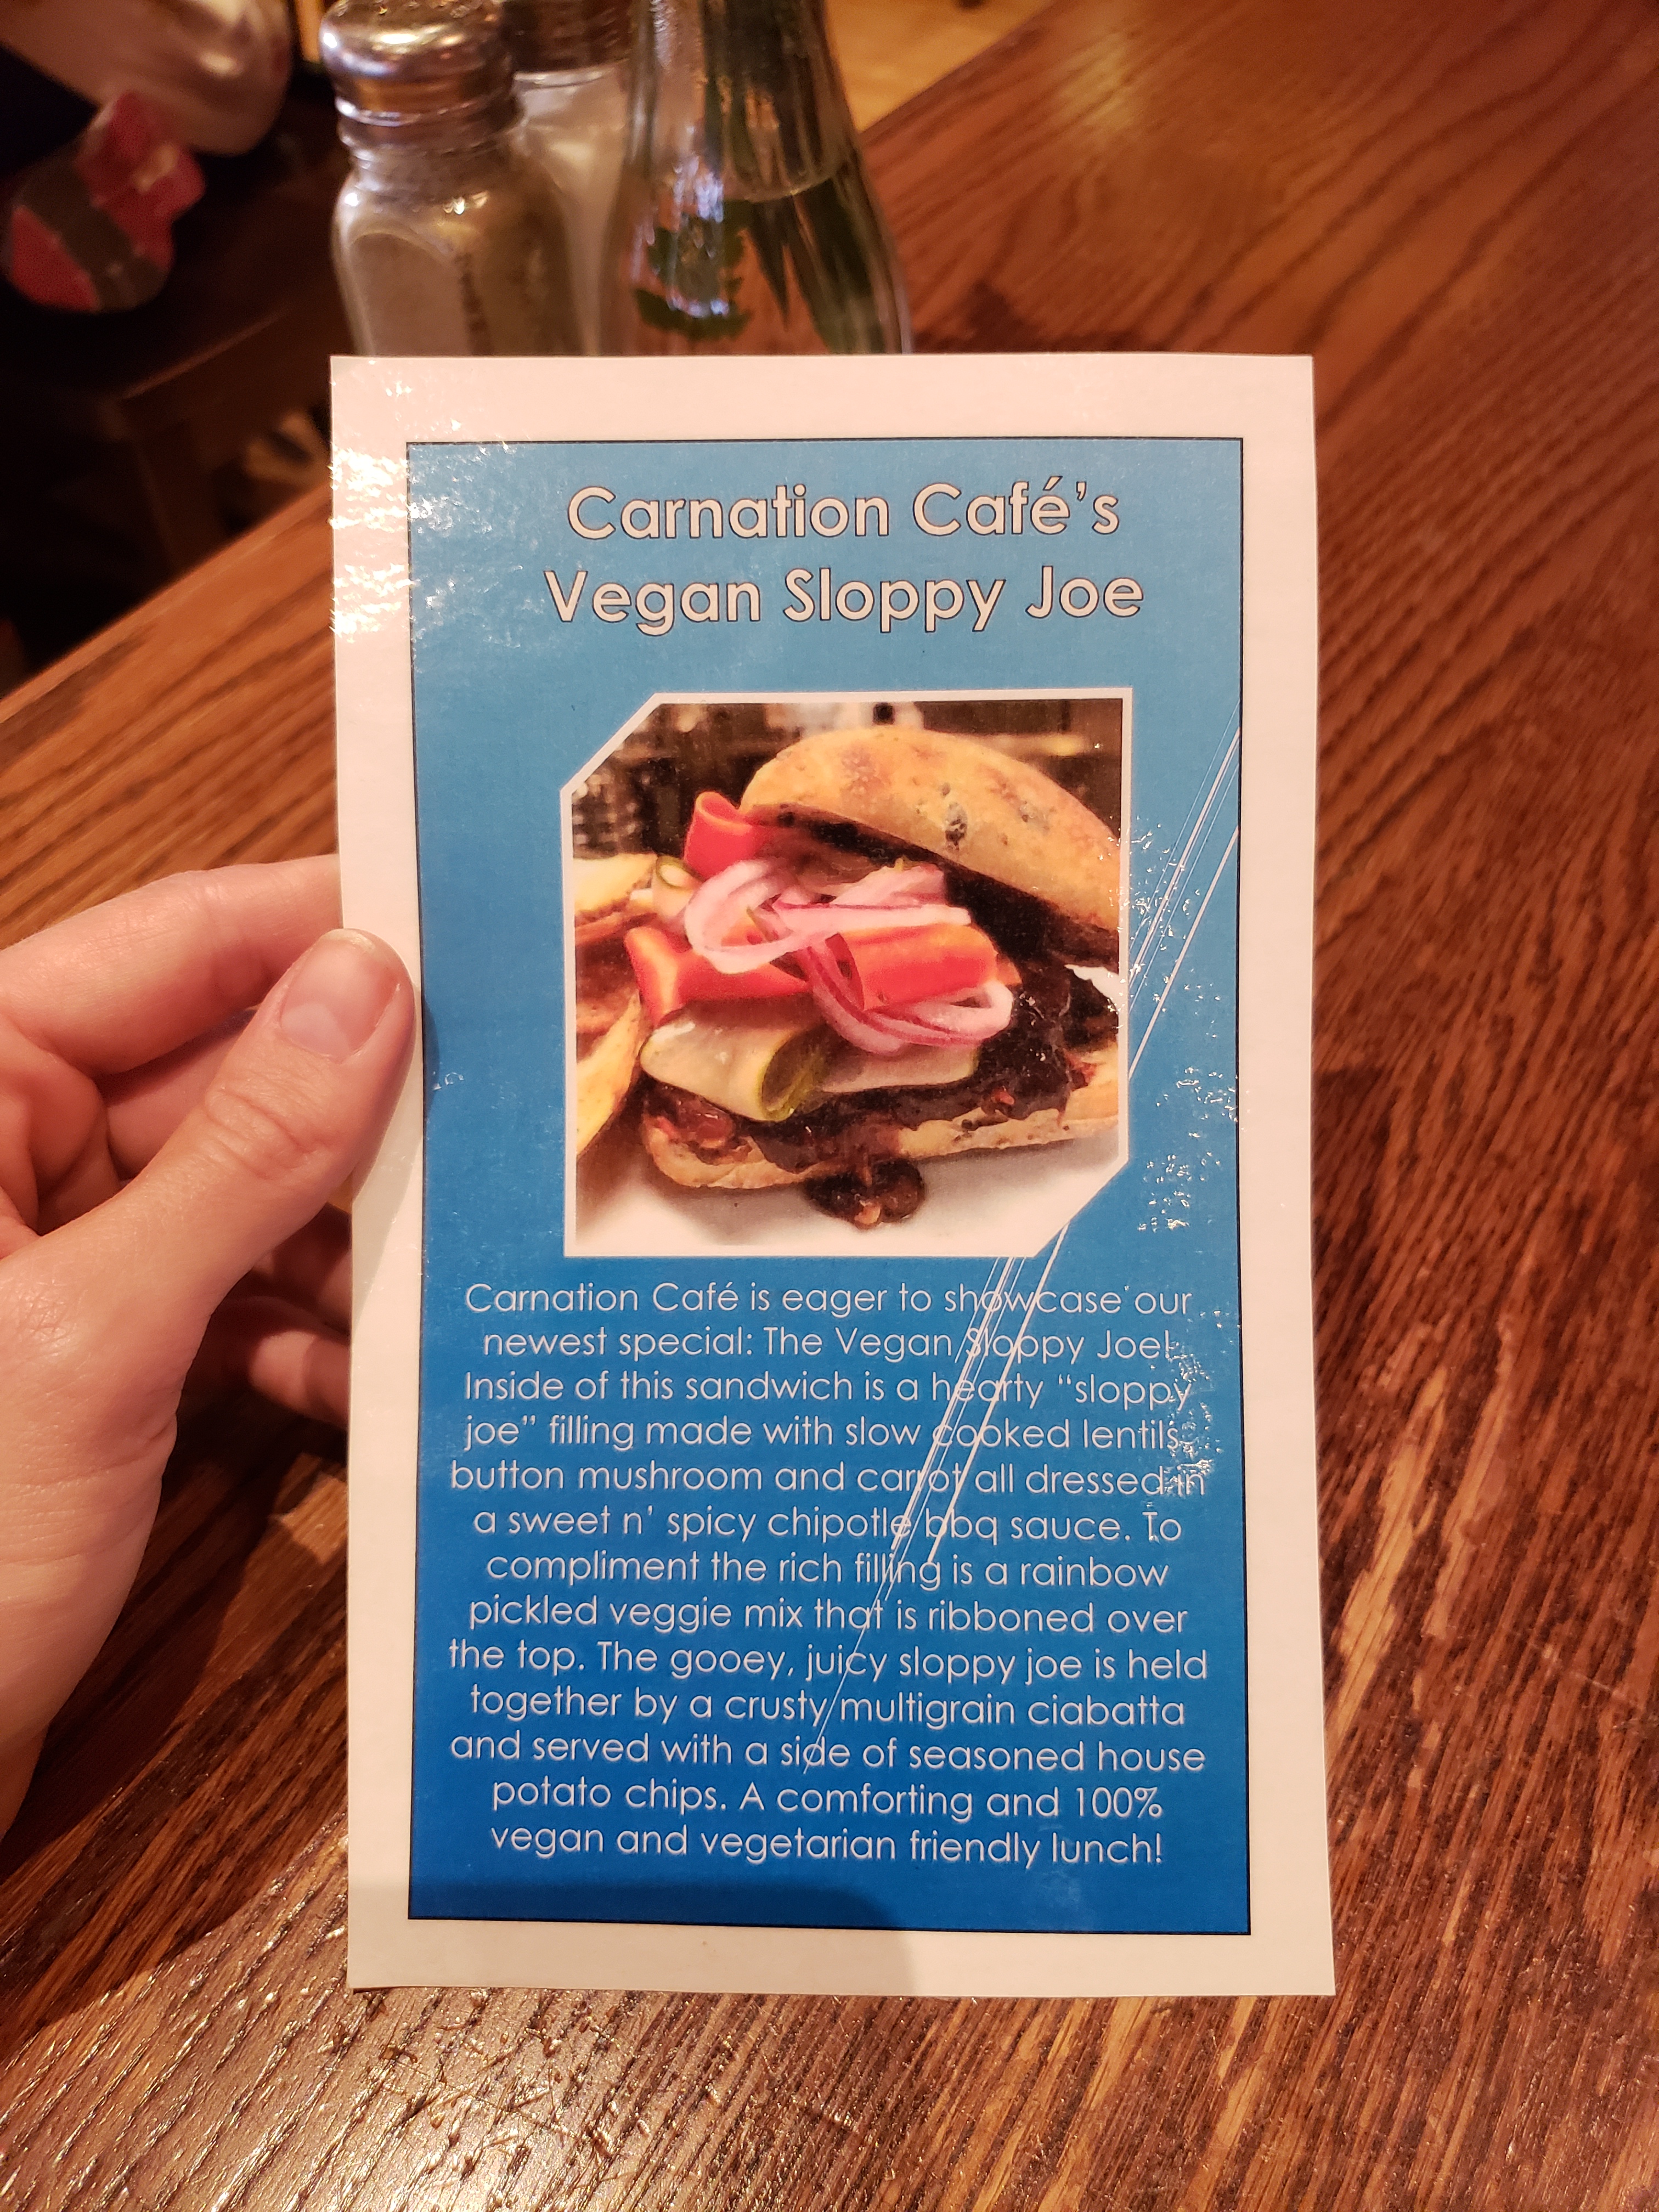 Carnation Café's
Vegan Sloppy Joe
Carnation Café is eager to showcase our
newest special: The Vegan Sloppy Joe!
Inside of this sandwich is a hearty “sloppy
joe” filling made with slow cooked lentils,
button mushroom and carrot all dressed in
a sweet n' spicy chipotle bbq sauce. To
compliment the rich filling is a rainbow
pickled veggie mix that is ribboned over
the top. The gooey, juicy sloppy joe is held
together by a crusty multigrain ciabatta
and served with a side of seasoned house
potato chips. A comforting and 100%
vegan and vegetarian friendly lunch!